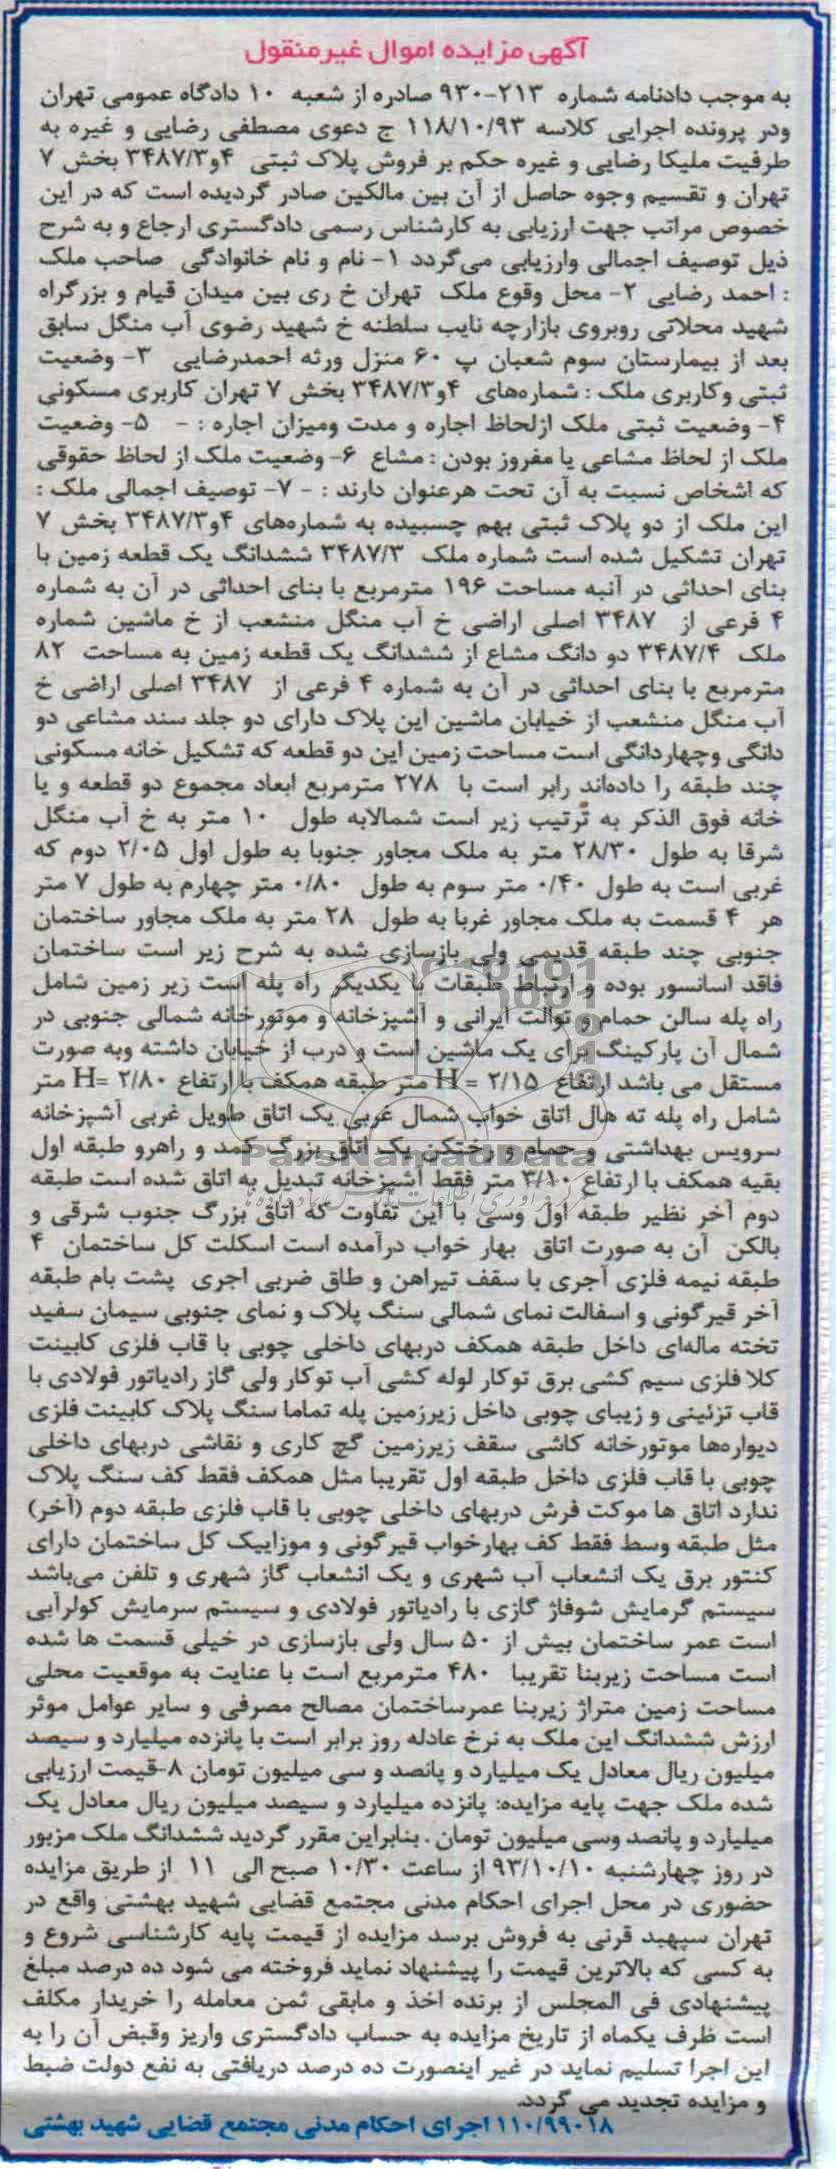 آگهی مزایده اموال غیرمنقول
به موجب دادنامه شماره ۲۱۳-۹۳۰ صادره از شعبه ۱۰ دادگاه عمومی تهران
ودر پرونده اجرایی کلاسه ۱۱۸/۱۰/۹۳ ج دعوی مصطفی رضایی و غیره به
طرفیت ملیکا رضایی و غیره حکم بر فروش پلاک ثبتی ۴و۳۴۸۷/۳ بخش ۷
تهران و تقسیم وجوه حاصل از آن بین مالکین صادر گردیده است که در این
خصوص مراتب جهت ارزیابی به کارشناس رسمی دادگستری ارجاع و به شرح
ذیل توصیف اجمالی وارزیابی می‌گردد ۱- نام و نام خانوادگی صاحب ملک
: احمد رضایی ۲- محل وقوع ملک تهران خ ری بین میدان قیام و بزرگراه
شهید محلاتی روبروی بازارچه نایب سلطنه خ شهید رضوی آب منگل سابق
بعد از بیمارستان سوم شعبان پ ۶۰ منزل ورثه احمدرضایی ۳- وضعیت
ثبتی وکاربری ملک : شماره‌های ۴و۳۴۸۷/۳ بخش ۷ تهران کاربری مسکونی
۴- وضعیت ثبتی ملک ازلحاظ اجاره و مدت ومیزان اجاره : - ۵- وضعیت
ملک از لحاظ مشاعی یا مفروز بودن : مشاع ۶- وضعیت ملک از لحاظ حقوقی
که اشخاص نسبت به آن تحت هرعنوان دارند : - ۷- توصیف اجمالی ملک :
این ملک از دو پلاک ثبتی بهم چسبیده به شماره‌های ۴و۳۴۸۷/۳ بخش ۷
تهران تشکیل شده است شماره ملک ۳۴۸۷/۳ ششدانگ یک قطعه زمین با
بنای احداثی در آنبه مساحت ۱۹۶ مترمربع با بنای احداثی در آن به شماره
۴ فرعی از ۳۴۸۷ اصلی اراضی خ آب منگل منشعب از خ ماشین شماره
ملک ۳۴۸۷/۴ دو دانگ مشاع از ششدانگ یک قطعه زمین به مساحت ۸۲
مترمربع با بنای احداثی در آن به شماره ۴ فرعی از ۳۴۸۷ اصلی اراضی خ
آب منگل منشعب از خیابان ماشین این پلاک دارای دو جلد سند مشاعی دو
دانگی وچهاردانگی است مساحت زمین این دو قطعه که تشکیل خانه مسکونی
چند طبقه را داده‌اند رابر است با ۲۷۸ مترمربع ابعاد مجموع دو قطعه و یا
خانه فوق الذکر به ترتیب زیر است شمالابه طول ۱۰ متر به خ آب منگل
شرقا به طول ۲۸/۳۰ متر به ملک مجاور جنوبا به طول اول ۲/۰۵ دوم که
غربی است به طول ۰/۴۰ متر سوم به طول ۰/۸۰ متر چهارم به طول ۷ متر
هر ۴ قسمت به ملک مجاور غربا به طول ۲۸ متر به ملک مجاور ساختمان
جنوبی چند طبقه قدیمی ولی بازسازی شده به شرح زیر است ساختمان
فاقد اسانسور بوده و ارتباط طبقات با یکدیگر راه پله است زیر زمین شامل
راه پله سالن حمام و توالت ایرانی و آشپزخانه و موتورخانه شمالی جنوبی در
شمال آن پارکینگ برای یک ماشین است و درب از خیابان داشته وبه صورت
مستقل می باشد ارتفاع ۲/۱۵ = H متر طبقه همکف با ارتفاع ۲/۸۰ =H متر
شامل راه پله ته هال اتاق خواب شمال غربی یک اتاق طویل غربی آشپزخانه
سرویس بهداشتی و حمام و رختکن یک اتاق بزرگ کمد و راهرو طبقه اول
بقیه همکف با ارتفاع ۳/۱۰ متر فقط آشپزخانه تبدیل به اتاق شده است طبقه
دوم آخر نظیر طبقه اول وسی با این تفاوت که اتاق بزرگ جنوب شرقی و
بالکن آن به صورت اتاق بهار خواب درآمده است اسکلت کل ساختمان ۴
طبقه نیمه فلزی آجری با سقف تیراهن و طاق ضربی اجری پشت بام طبقه
آخر قیرگونی و اسفالت نمای شمالی سنگ پلاک و نمای جنوبی سیمان سفید
تخته ماله‌ای داخل طبقه همکف دربهای داخلی چوبی با قاب فلزی کابینت
کلا فلزی سیم کشی برق توکار لوله کشی آب توکار ولی گاز رادیاتور فولادی با
قاب تزئینی و زیبای چوبی داخل زیرزمین پله تماما سنگ پلاک کابینت فلزی
دیواره‌ها موتورخانه کاشی سقف زیرزمین گچ کاری و نقاشی دربهای داخلی
چوبی با قاب فلزی داخل طبقه اول تقریبا مثل همکف فقط کف سنگ پلاک
ندارد اتاق ها موکت فرش دربهای داخلی چوبی با قاب فلزی طبقه دوم (آخر)
مثل طبقه وسط فقط کف بهارخواب قیرگونی و موزاییک کل ساختمان دارای
کنتور برق یک انشعاب آب شهری و یک انشعاب گاز شهری و تلفن می‌باشد
سیستم گرمایش شوفاژ گازی با رادیاتور فولادی و سیستم سرمایش کولرآبی
است عمر ساختمان بیش از ۵۰ سال ولی بازسازی در خیلی قسمت ها شده
است مساحت زیربنا تقریبا ۴۸۰ مترمربع است با عنایت به موقعیت محلی
مساحت زمین متراژ زیربنا عمرساختمان مصالح مصرفی و سایر عوامل موثر
ارزش ششدانگ این ملک به نرخ عادله روز برابر است با پانزده میلیارد و سیصد
میلیون ریال معادل یک میلیارد و پانصد و سی میلیون تومان ۸-قیمت ارزیابی
شده ملک جهت پایه مزایده: پانزده میلیارد و سیصد میلیون ریال معادل یک
میلیارد و پانصد وسی میلیون تومان . بنابراین مقرر گردید ششدانگ ملک مزبور
در روز چهارشنبه ۹۳/۱۰/۱۰ از ساعت ۱۰/۳۰ صبح الی ۱۱ از طریق مزایده
حضوری در محل اجرای احکام مدنی مجتمع قضایی شهید بهشتی واقع در
تهران سپهبد قرنی به فروش برسد مزایده از قیمت پایه کارشناسی شروع و
به کسی که بالاترین قیمت را پیشنهاد نماید فروخته می شود ده درصد مبلغ
پیشنهادی فی المجلس از برنده اخذ و مابقی ثمن معامله را خریدار مکلف
است ظرف یکماه از تاریخ مزایده به حساب دادگستری واریز وقبض آن را به
این اجرا تسلیم نماید در غیر اینصورت ده درصد دریافتی به نفع دولت ضبط
و مزایده تجدید می گردد.
۱۱۰/۹۹۰۱۸ اجرای احکام مدنی مجتمع قضایی شهید بهشتی
ParsNamadData